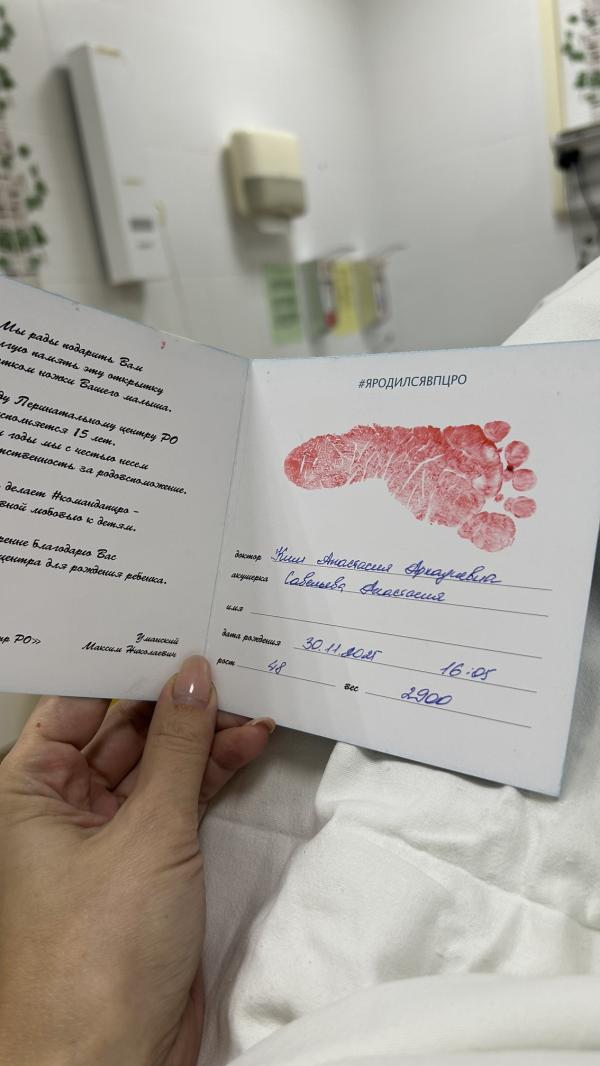 Мы рады подарить Вам
память эту открытку
ножки Вашего малыша.
Перинатальному центру РО
15 лет.
годы мы с честью несем
за родовспоможение.
делает #командапцро -
любовью к детям.
Благодарю Вас
центра для рождения ребенка.
РО»
Уманский
Максим Николаевич
#ЯРОДИЛСЯВПЦРО
доктор Ким Анастасия Аркадьевна
акушерка Савельева Анастасия
имя
дата рождения 30.11.2025 16:05
рост 48 вес 2900